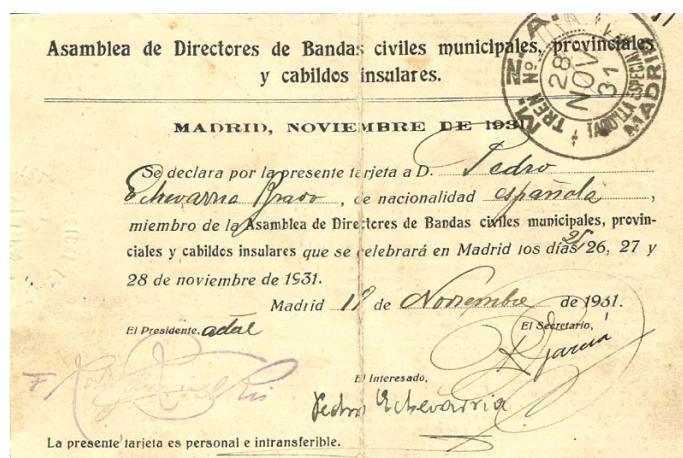 Asamblea de Directores de Bandas civiles municipales, provinciales
y cabildos insulares.
M.Z.A.
TREN Nº
28
NOV
31
TAQUILLA ESPECIAL
MADRID
MADRID, NOVIEMBRE DE 1931
Se declara por la presente tarjeta a D. Pedro
Echevarria Bravo, de nacionalidad española,
miembro de la Asamblea de Directores de Bandas civiles municipales, provin-
ciales y cabildos insulares que se celebrará en Madrid los días 25/26, 27 y
28 de noviembre de 1931.
Madrid 1º de Noviembre de 1931.
El Presidente, adal
El Secretario,
García
El Interesado,
Pedro Echevarria
La presente tarjeta es personal e intransferible.